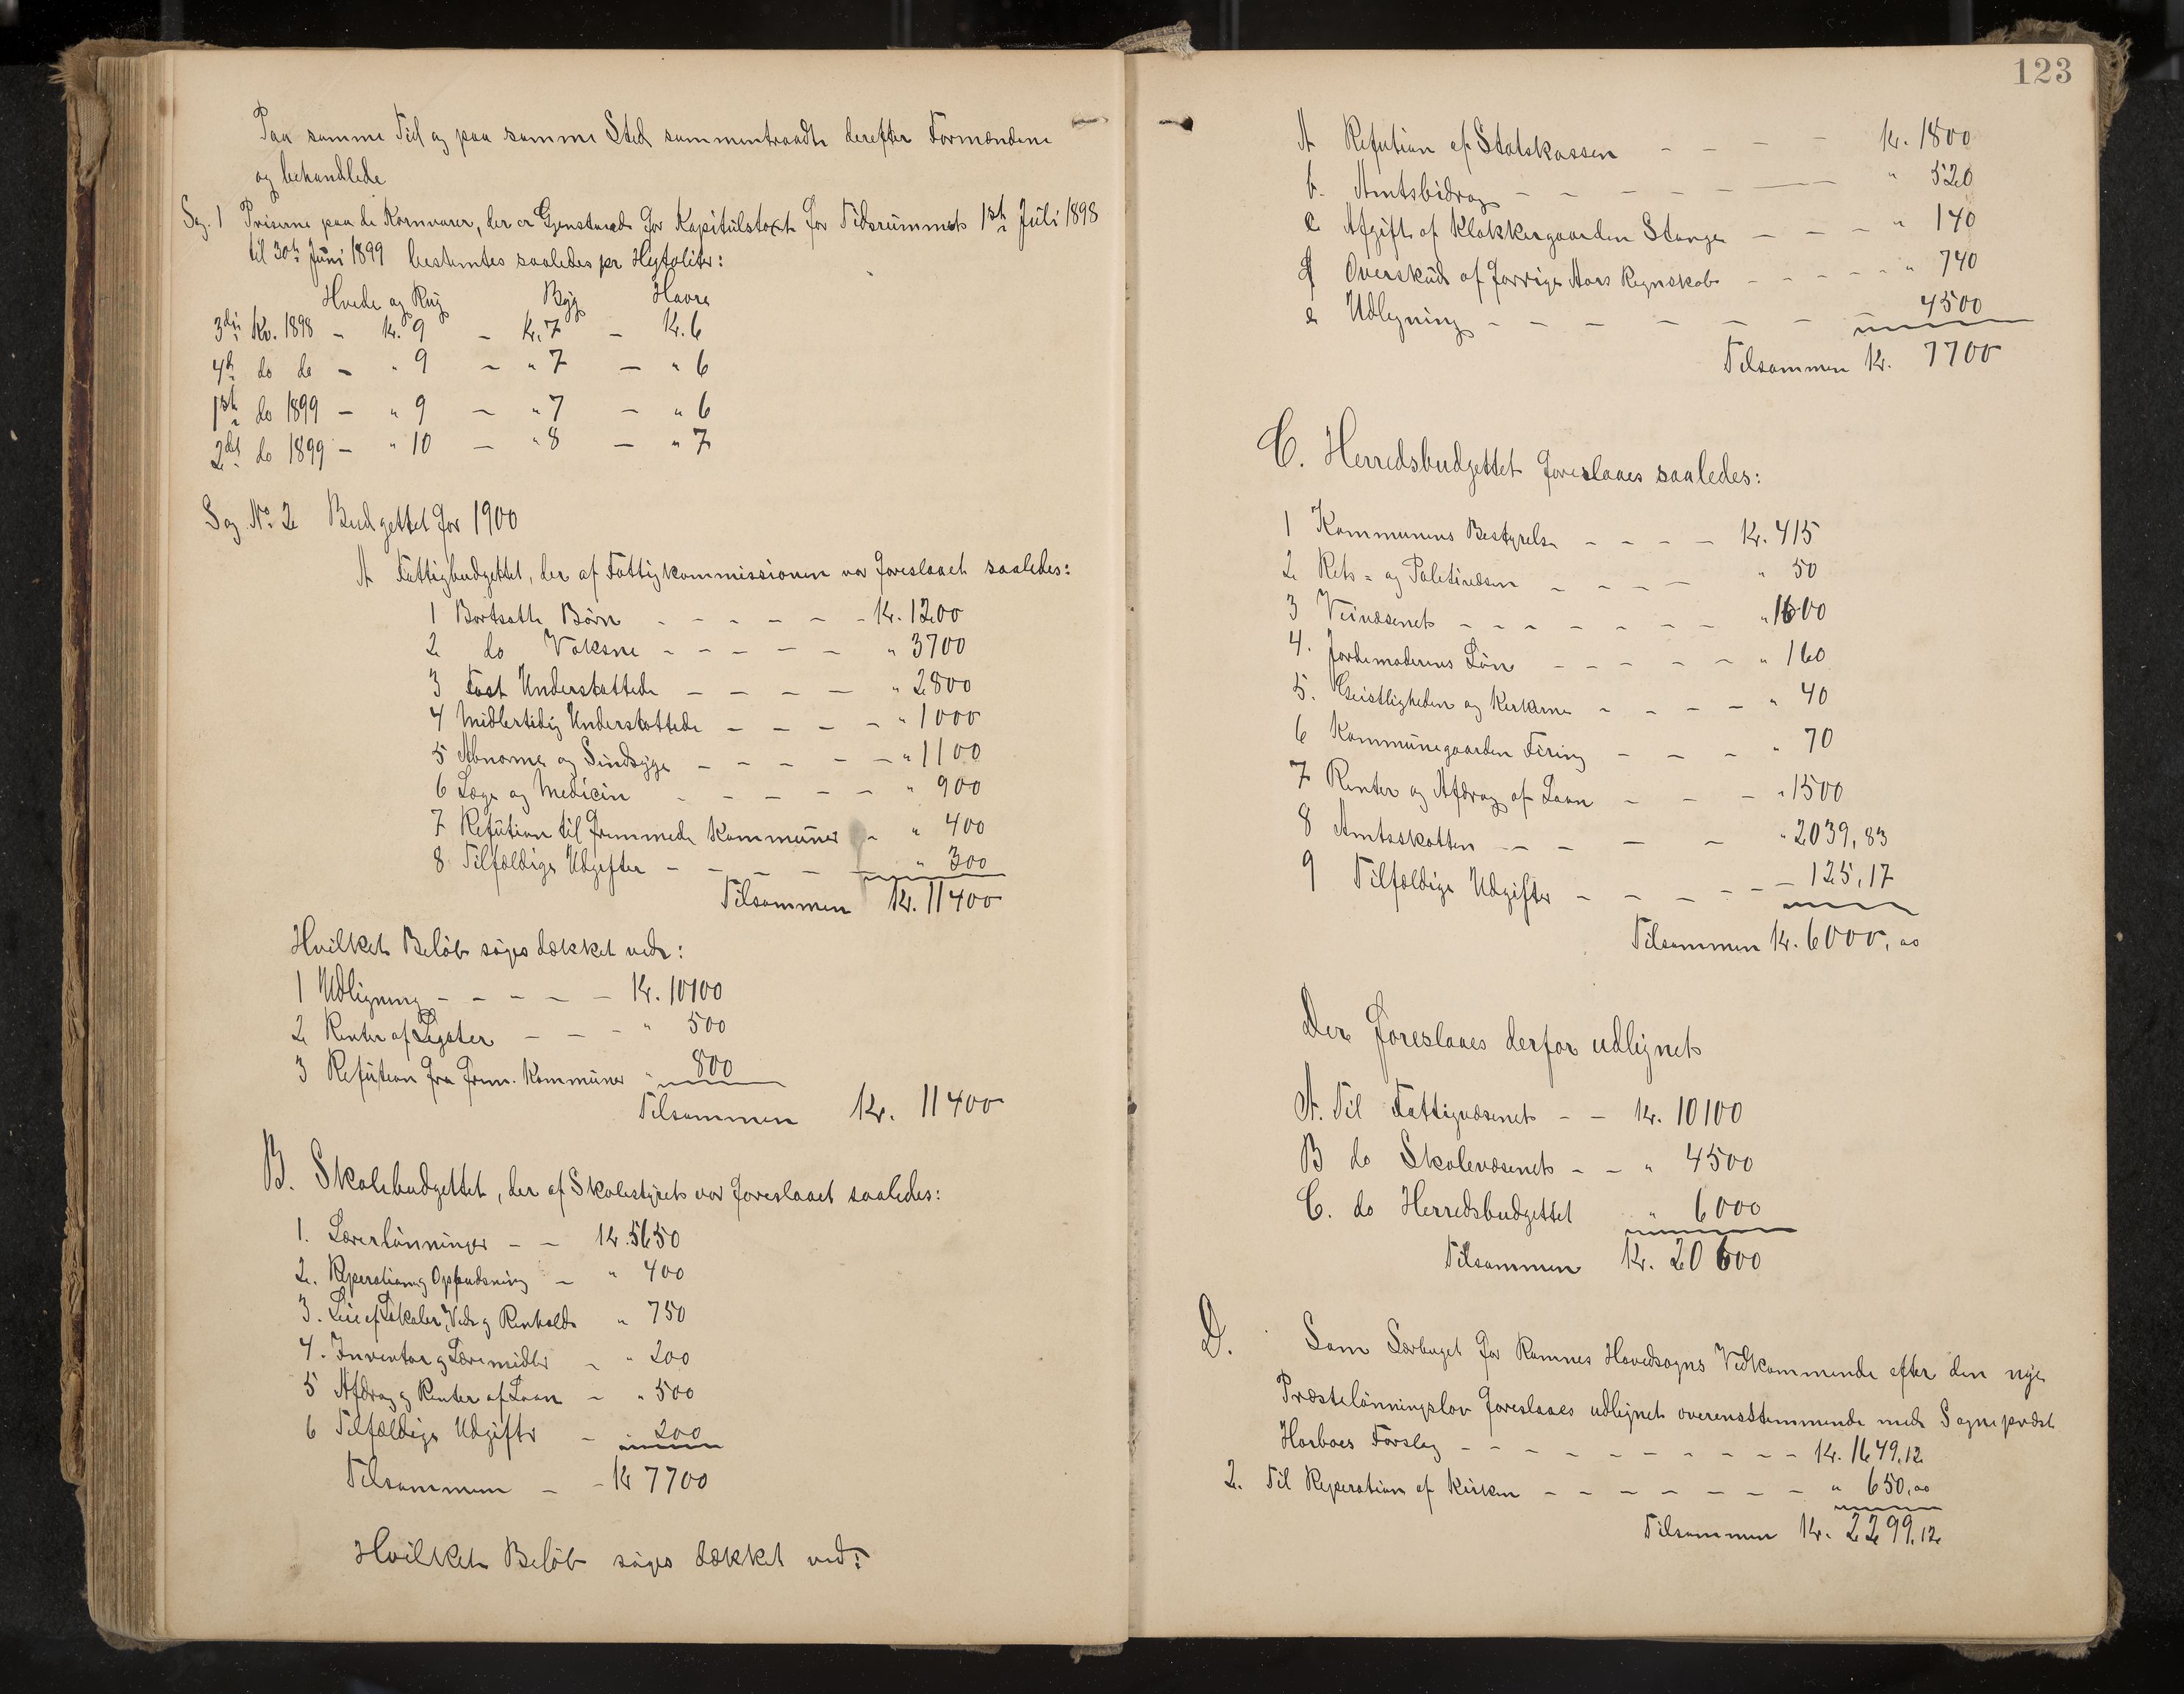 Paa samme Tid og paa samme Sted sammentraadte derefter Formændene
og behandlede
Sag. 1 Priserne paa de Kornvarer, der er Gjenstande for Kapitulstaxt for Tidsrummet 1ste Juli 1898
til 30te Juni 1899 bestemtes saaledes pr Hektoliter:
Hvede og Rug Byg Havre
3die Kv. 1898 – Kr. 9 – Kr. 7 – Kr. 6
4de do do – " 9 – " 7 – " 6
1ste do 1899 – " 9 – " 7 – " 6
2det do 1899 – " 10 – " 8 – " 7
Sag No. 2 Budgettet for 1900
A Fattigbudgettet, der af Fattigkommissionen var foreslaaet saaledes:
1 Bortsatte Børn – – – – – – Kr. 1200
2 do Voksne – – – – – " 3700
3 Fast Understøttede – – – – " 2800
4 Midlertidig Understøttede – – – – " 1000
5 Abnorme og Sindsyge – – – – – " 1100
6 Læge og Medicin – – – – – " 900
7 Refution til fremmede Kommuner – " 400
8 Tilfældige Udgifter – – – – – " 300
Tilsammen Kr. 11400
Hvilket Beløb søges dækket ved:
1 Udligning – – – – – Kr. 10100
2 Renter af Legater – – – " 500
3 Refution fra frem. Kommuner " 800
Tilsammen Kr. 11400
B. Skolebudgettet, der af Skolestyret var foreslaaet saaledes:
1. Lærerlønninger – – Kr. 5650
2. Reperation og Oppudsning – " 400
3. Leie af Lokaler, Ved og Renhold " 750
4. Inventar og Læremidler – " 200
5 Afdrag og Renter af Laan – " 500
6 Tilfældige Udgifter – " 200
Tilsammen – – Kr 7700
Hvilket Beløb søges dækket ved:
123
A Refution af Statskassen – – – – Kr. 1800
b. Amtsbidrag – – – – – – " 520
c Afgift af Klokkergaarden Stange – – – " 140
d Overskud af forrige Aars Regnskab – – – – " 740
e Udligning – – – – – – – 4500
Tilsammen Kr. 7700
C. Herredsbudgettet foreslaaes saaledes:
1 Kommunens Bestyrelse – – – – Kr. 415
2 Rets- og Politivæsen – – – – " 50
3 Veivæsenet – – – – – – – " 1600
4. Jordemoderens Løn – – – – – " 160
5. Geistligheden og Kirkerne – – – – " 40
6 Kommunegaarden Firing – – – " 70
7 Renter og Afdrag af Laan – – – " 1500
8 Amtsskatten – – – – – " 2039,83
9 Tilfældige Udgifter – – – – – – 125,17
Tilsammen Kr. 6000,00
Der foreslaaes derfor udlignet
A. Til Fattigvæsenet – – Kr. 10100
B do Skolevæsenet – – " 4500
C. do Herredsbudgettet " 6000
Tilsammen Kr. 20600
D. Som Særbuget for Ramnes Hovedsogns Vedkommende efter den nye
Præstelønningslov foreslaaes udlignet overensstemmende med Sogneprest
Horboes Forslag – – – – – – – – – – Kr. 1649,12
2. Til Reperation af Kirken – – – – – – – – " 650,00
Tilsammen Kr. 2299,12